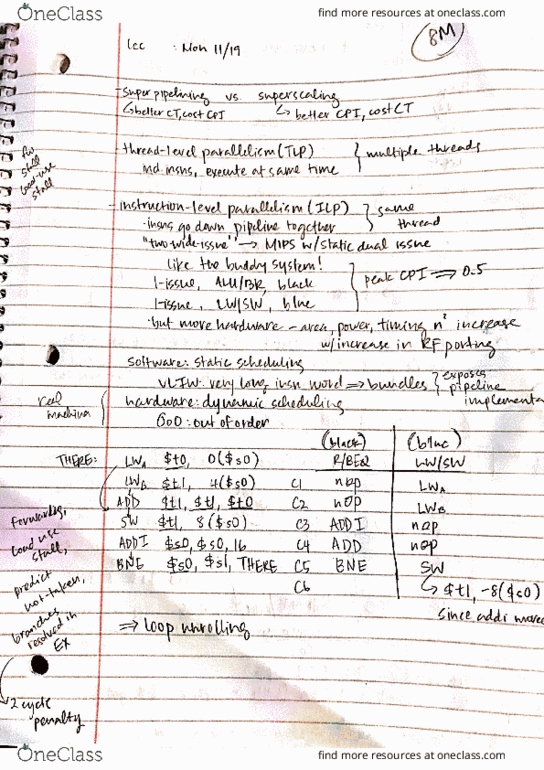 OneClass
find more resources at oneclass.com
8M
Lec : Mon 11/19
super pipelining vs. superscaling
↳ better CT, cost CPI ↳ better CPI, cost CT
thread-level parallelism (TLP) } multiple threads
ind. insns, execute at same time
fw
stall
load-use
stall
instruction-level parallelism (ILP) } same thread
-insns go down pipeline together
"two-wide-issue" → MIPS w/static dual issue
like the buddy system!
1-issue, ALU/BR, black } peak CPI ⇒ 0.5
1-issue, LW/SW, blue
-but more hardware - area, power, timing n² increase
w/increase in RF porting
software: static scheduling
VLIW: very long insn word ⇒ bundles } exposes pipeline implementa
real machine { hardware: dynamic scheduling
OoO: out of order
(black) (blue)
THERE: LWA $t0, 0($s0) R/BEQ LW/SW
LWB $t1, 4($s0) C1 nop LWA
ADD $t1, $t1, $t0 C2 nop LWB
SW $t1, 8($s0) C3 ADDI nop
ADDI $s0, $s0, 16 C4 ADD nop
BNE $s0, $s1, THERE C5 BNE SW
C6 ↳ $t1, -8($s0)
since addi move
⇒ loop unrolling
forwarding,
load use
stall,
predict
not-taken,
branches
resolved in
EX
2 cycle
penalty
OneClass
find more resources at oneclass.com